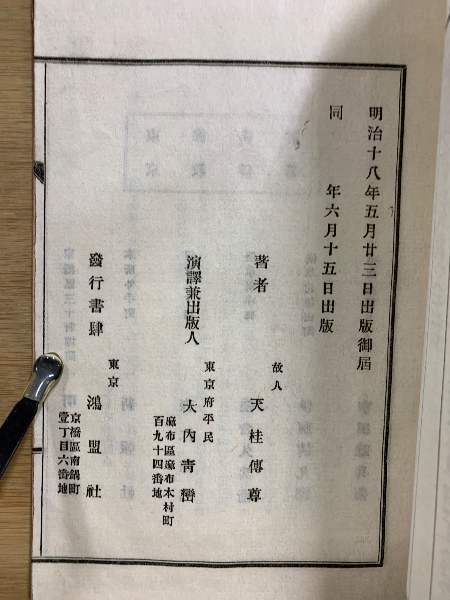 明治十八年五月廿三日出版御屆
同　年六月十五日出版
著者　故人　天桂傳尊
演譯兼出版人　東京府平民　大內靑巒
麻布區麻布本村町
百九十四番地
發行書肆　東京　鴻盟社
京橋區南鍋町
壹丁目六番地